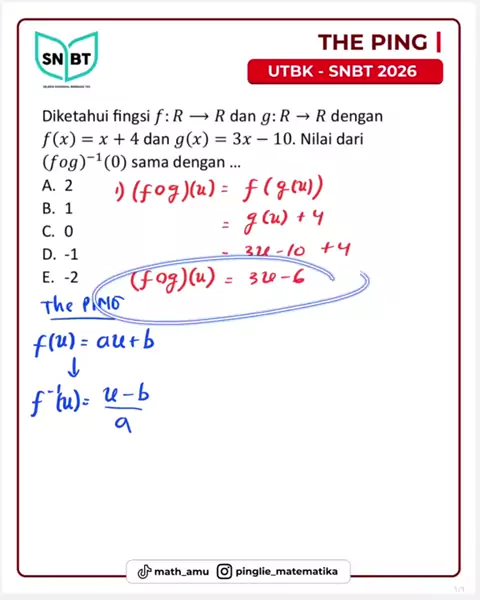 SNBT
THE PING
UTBK - SNBT 2026
Diketahui fingsi f: R → R dan g: R → R dengan
f(x) = x + 4 dan g(x) = 3x − 10. Nilai dari
(fog)⁻¹(0) sama dengan ...
A. 2
B. 1
C. 0
D. -1
E. -2
1) (fog)(x) = f(g(x))
= g(x) + 4
= 3x - 10 + 4
(fog)(x) = 3x - 6
The PING
f(x) = ax + b
↓
f⁻¹(x) = x - b
a
math_amu pinglie_matematika